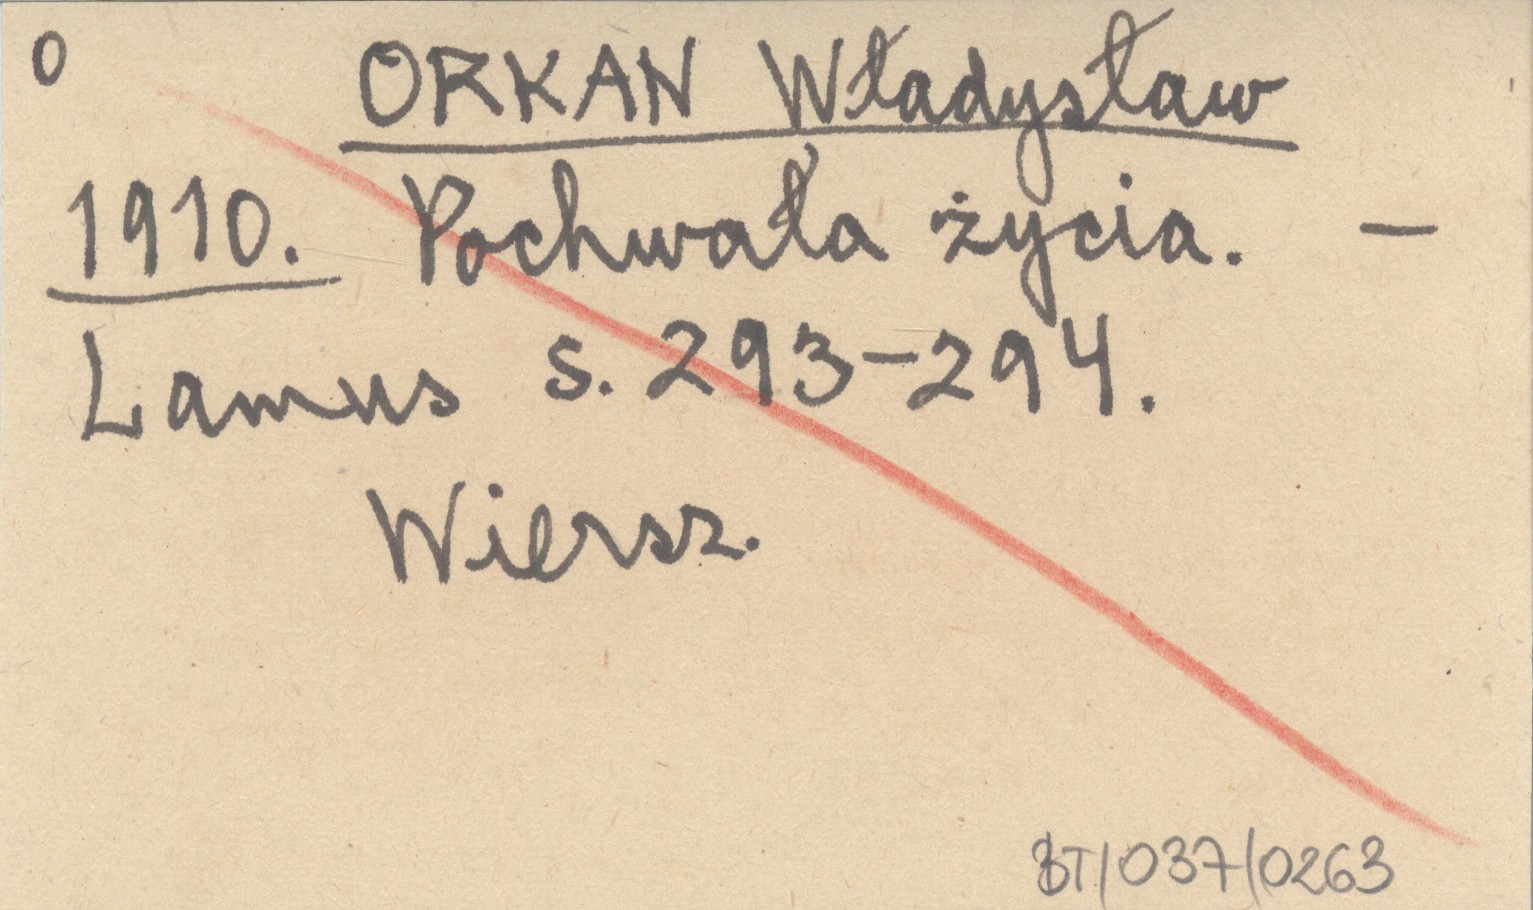 O
ORKAN Władysław
1910. Pochwała życia. –
Lamus s. 293-294.
Wiersz.
BT/037/0263